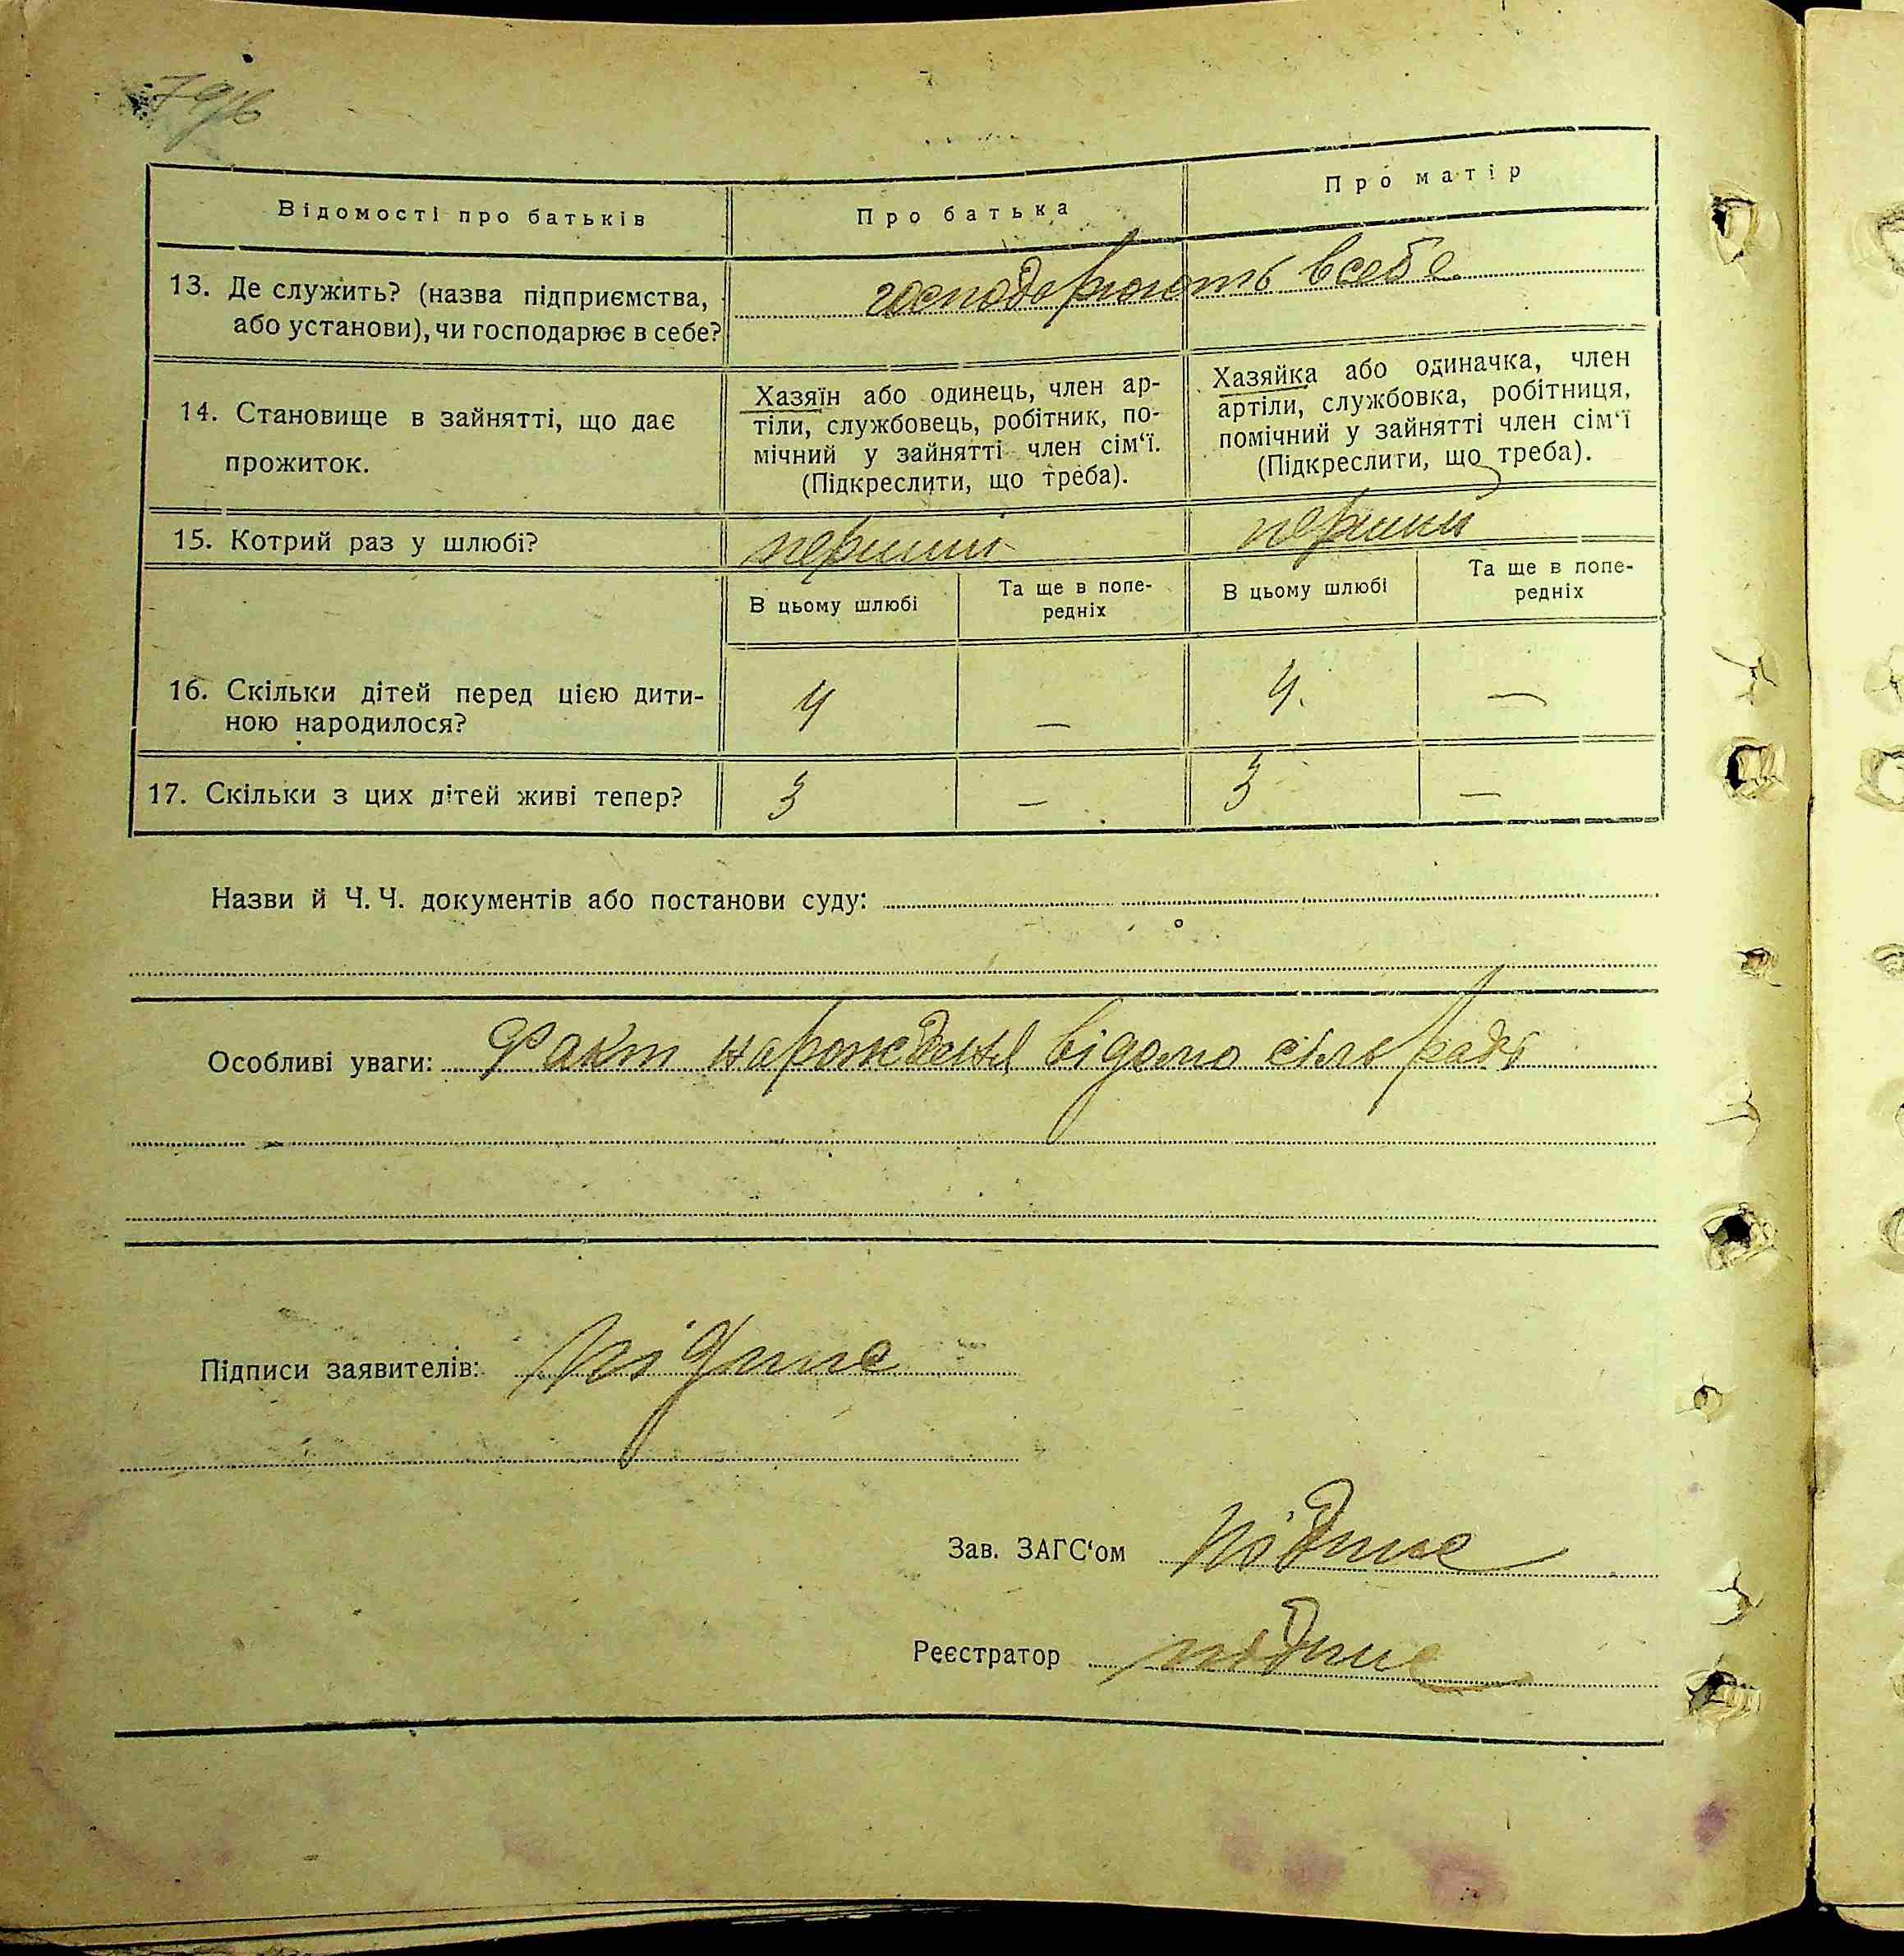 Відомості про батьків Про батька Про матір
13. Де служить? (назва підприємства, або установи), чи господарює в себе? господорюють всебе
14. Становище в зайнятті, що дає прожиток.
Хазяїн або одинець, член ар-
тіли, службовець, робітник, по-
мічний у зайнятті член сім‘ї.
(Підкреслити, що треба).
Хазяйка або одиначка, член
артіли, службовка, робітниця,
помічний у зайнятті член сім‘ї
(Підкреслити, що треба).
15. Котрий раз у шлюбі? перший перший
В цьому шлюбі Та ще в попе-
редніх В цьому шлюбі Та ще в попе-
редніх
16. Скільки дітей перед цією дити-
ною народилося? 4 — 4. —
17. Скільки з цих дітей живі тепер? 3 — 3 —
Назви й Ч. Ч. документів або постанови суду:
Особливі уваги: Факт нарождения відомо сільраді
Підписи заявителів: підпис
Зав. ЗАГС‘ом підпис
Реєстратор підпис